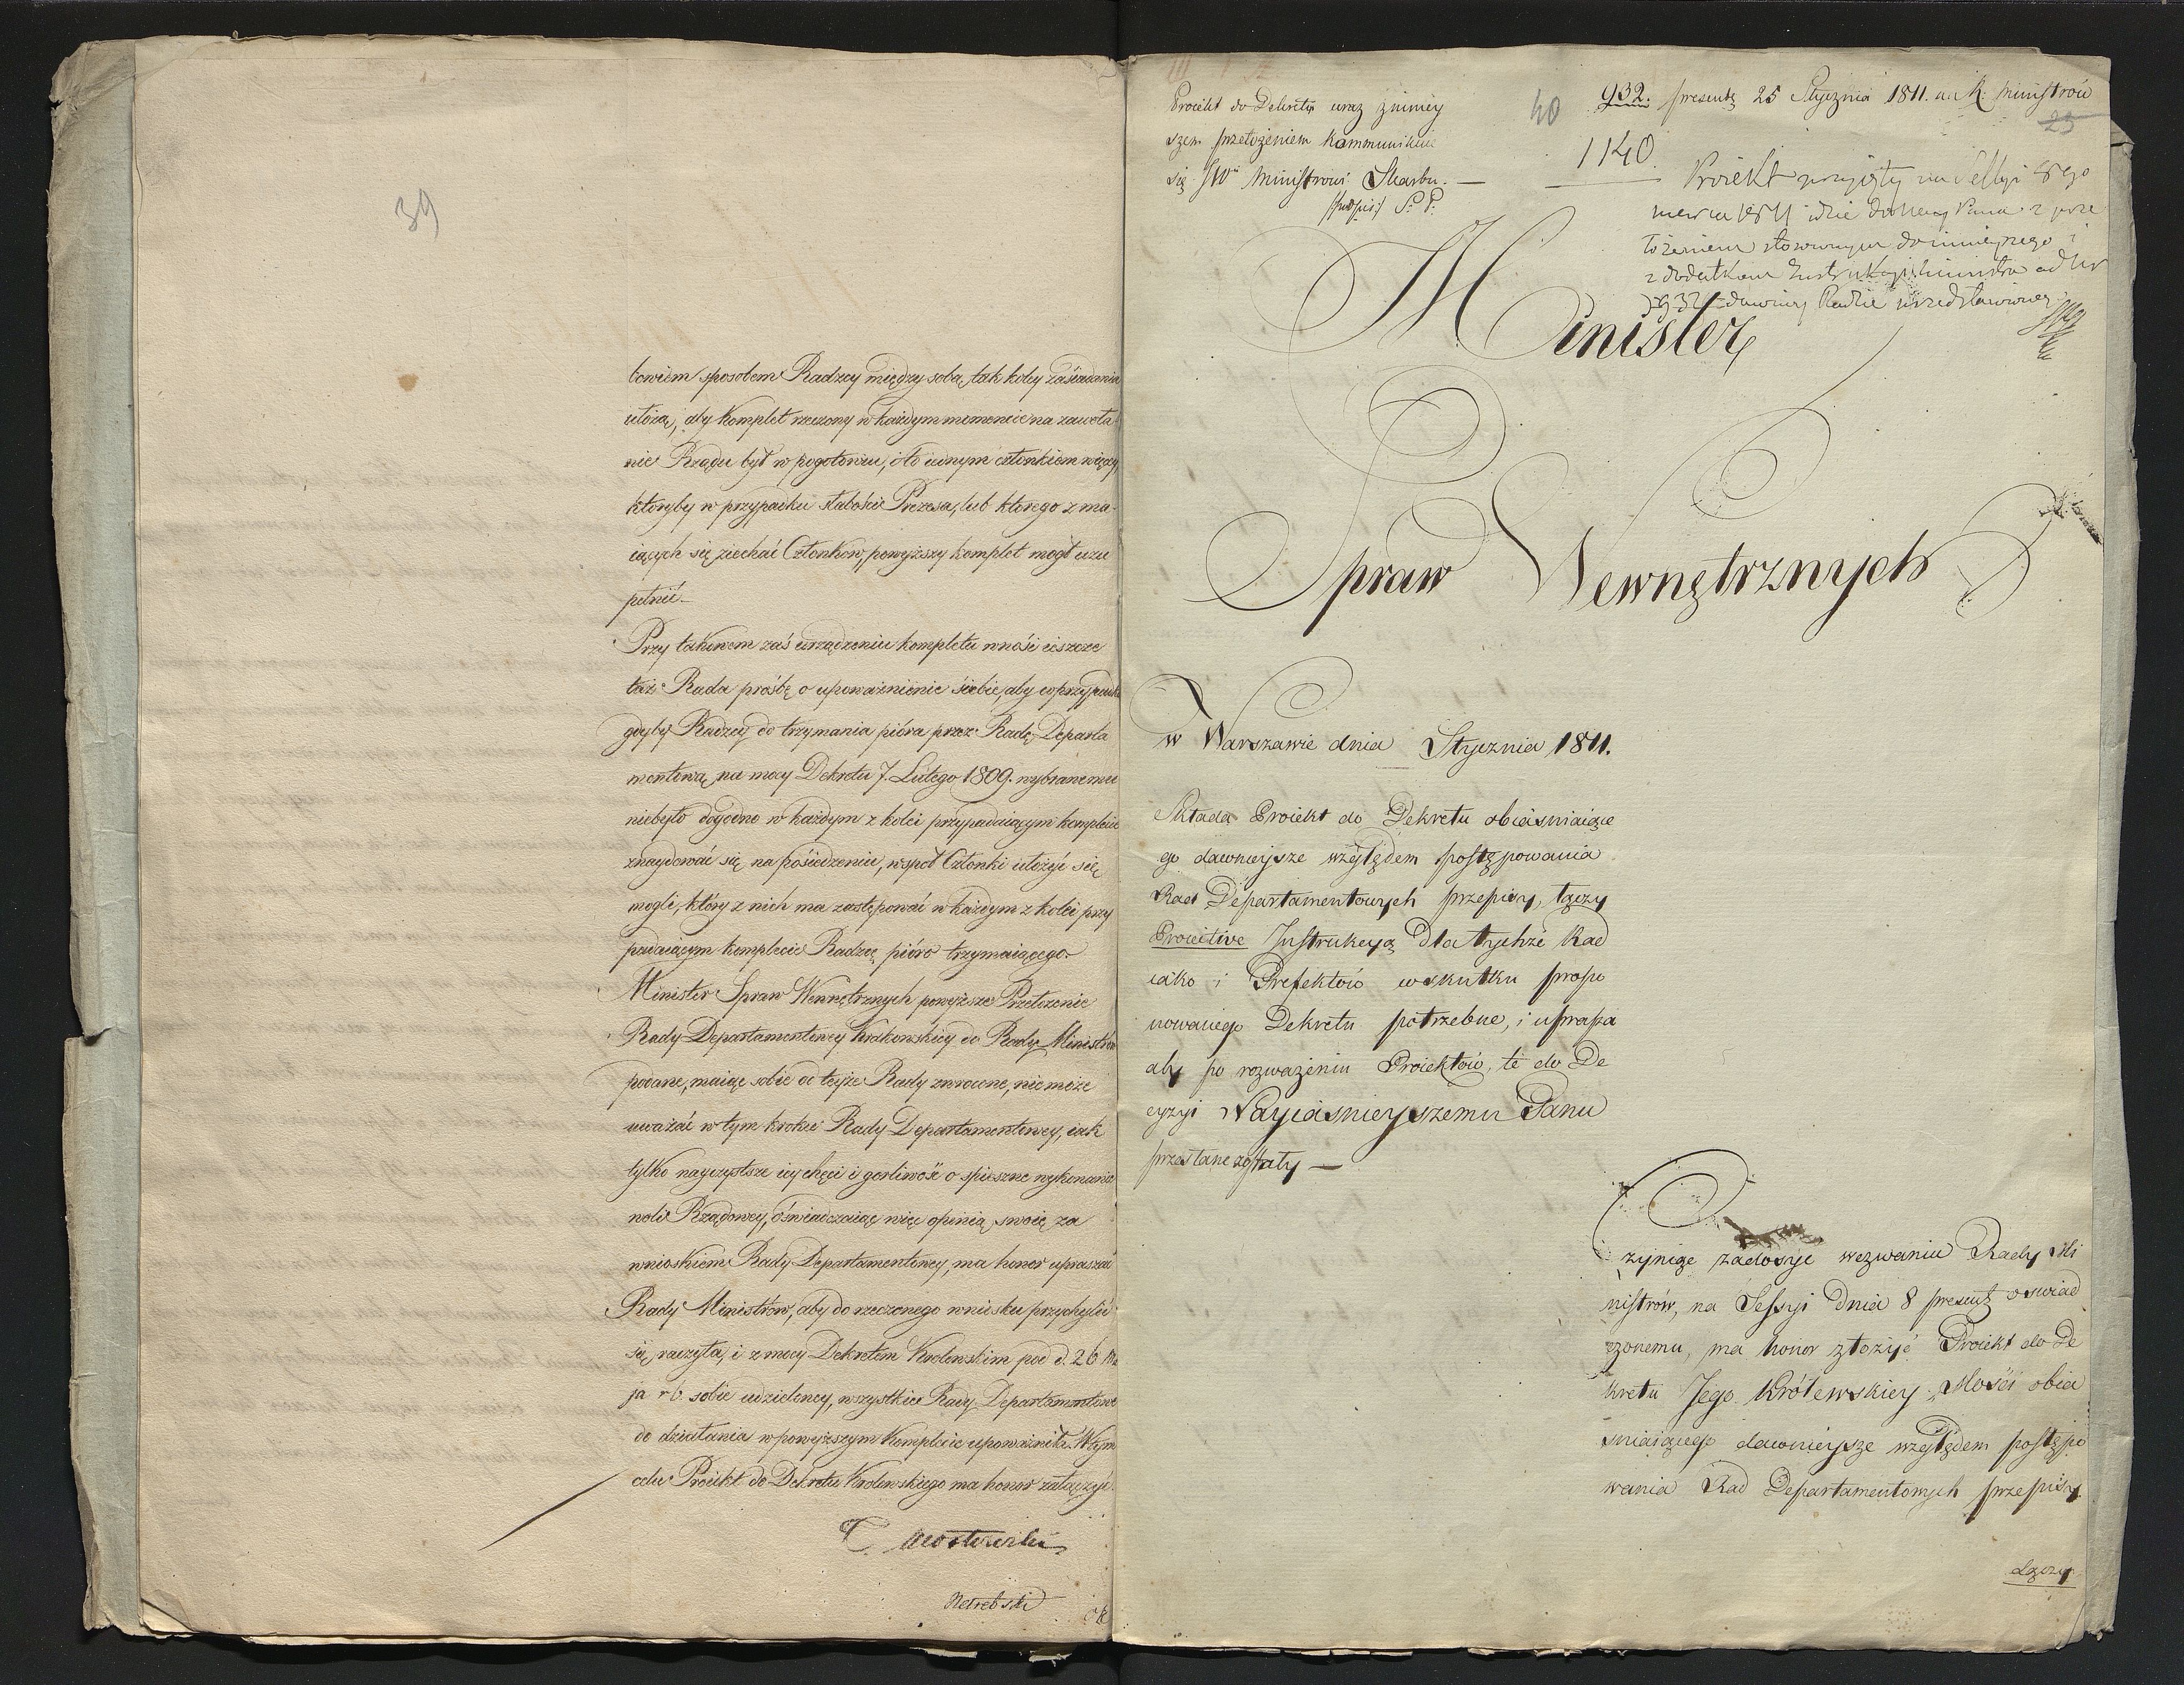 39
bowiem sposobem Radzcy między sobą, tak koley zasiadania
ułożą, aby Komplet rzeczony w każdym momencie na zawoła-
nie Rządu był w pogotowiu, i to iednym członkiem więcey,
któryby w przypadku słabości Prezesa, lub ktorego z ma-
iących się ziechać Członków, powyższy komplet mogł uzu
pełnić.
Przy takowem zaś urządzeniu kompletu wnosi ieszcze
taż Rada prośbę o upoważnienie siebie, aby w przypadku
gdyby Radzcy do trzymania pióra przez Radę Departa
mentową na mocy Dekretu 7. Lutego 1809. wybranemu
niebyło dogodno w każdym z kolei przypadaiącym komplecie
znaydować się na pośiedzeniu, wspoł Członki ułożyć się
mogli, który z nich ma zastępować w każdym z kolei przy
padaiącym komplecie Radzcę pióro trzymaiącego.
Minister Spraw Wewnętrznych powyższe Przełożenie
Rady Departamentowey Krakowskiey do Rady Ministrów
podane, maiąc sobie od teyże Rady zwrócone, nie może
uważać w tym kroku Rady Departamentowey, iak
tylko nayczystsze iey chęci i gorliwość o spieszne wykonanie
woli Rządowey, oświadczaiąc więc opinią swoię za
wnioskiem Rady Departamentowey, ma honor upraszać
Rady Ministrów, aby do rzeczonego wniosku przychylić
się raczyła, i z mocy Dekretem Krolewskim pod d. 26 Ma
ja r b. sobie udzieloney, wszystkie Rady Departamentowe
do działania w powyższym Komplecie upoważniła. W tym
celu Proiekt do Dekretu Krolewskiego ma honor załączyć.
T Mostowski
Proiekt do Dekretu wraz z niniey
szem przełożeniem kommunikuie
się JW Ministrowi Skarbu. —
/podpis/ S. P.
40
932. presentę 25 Stycznia 1811. na R. Ministrów
25
1140.
Proiekt przyięty na Sessyi 8go
marca 1811 idzie do Nay. Pana z prze
łożeniem stosownym do ninieyszego i
z dodatkiem Instrukcyi Ministra ad Nr
932 dawniey Radzie przedstawioney
Minister
Spraw Wewnętrznych
w Warszawie dnia Stycznia 1811.
Składa Proiekt do Dekretu obiaśniaiące
go dawnieysze względem postępowania
Rad Departamentowych przepisy, łączy
Proiective Instrukcyą dla tychże Rad
iako i Prefektów w skutku propo
nowanego Dekretu potrzebne, i uprasza
aby po rozważeniu Proiektów, te do De
cyzyi Nayiaśnieyszemu Panu
przesłane zostały —
Czyniąc zadosyc wezwaniu Rady Mi
nistrów, na Sessyi dnia 8 presentę oswiad
czonemu, ma honor złożyć Proiekt do De
kretu Jego Królewskiey Mości obia
śniaiącego dawnieysze względem postępo
wania Rad Departamentowych przepisy
Łączy